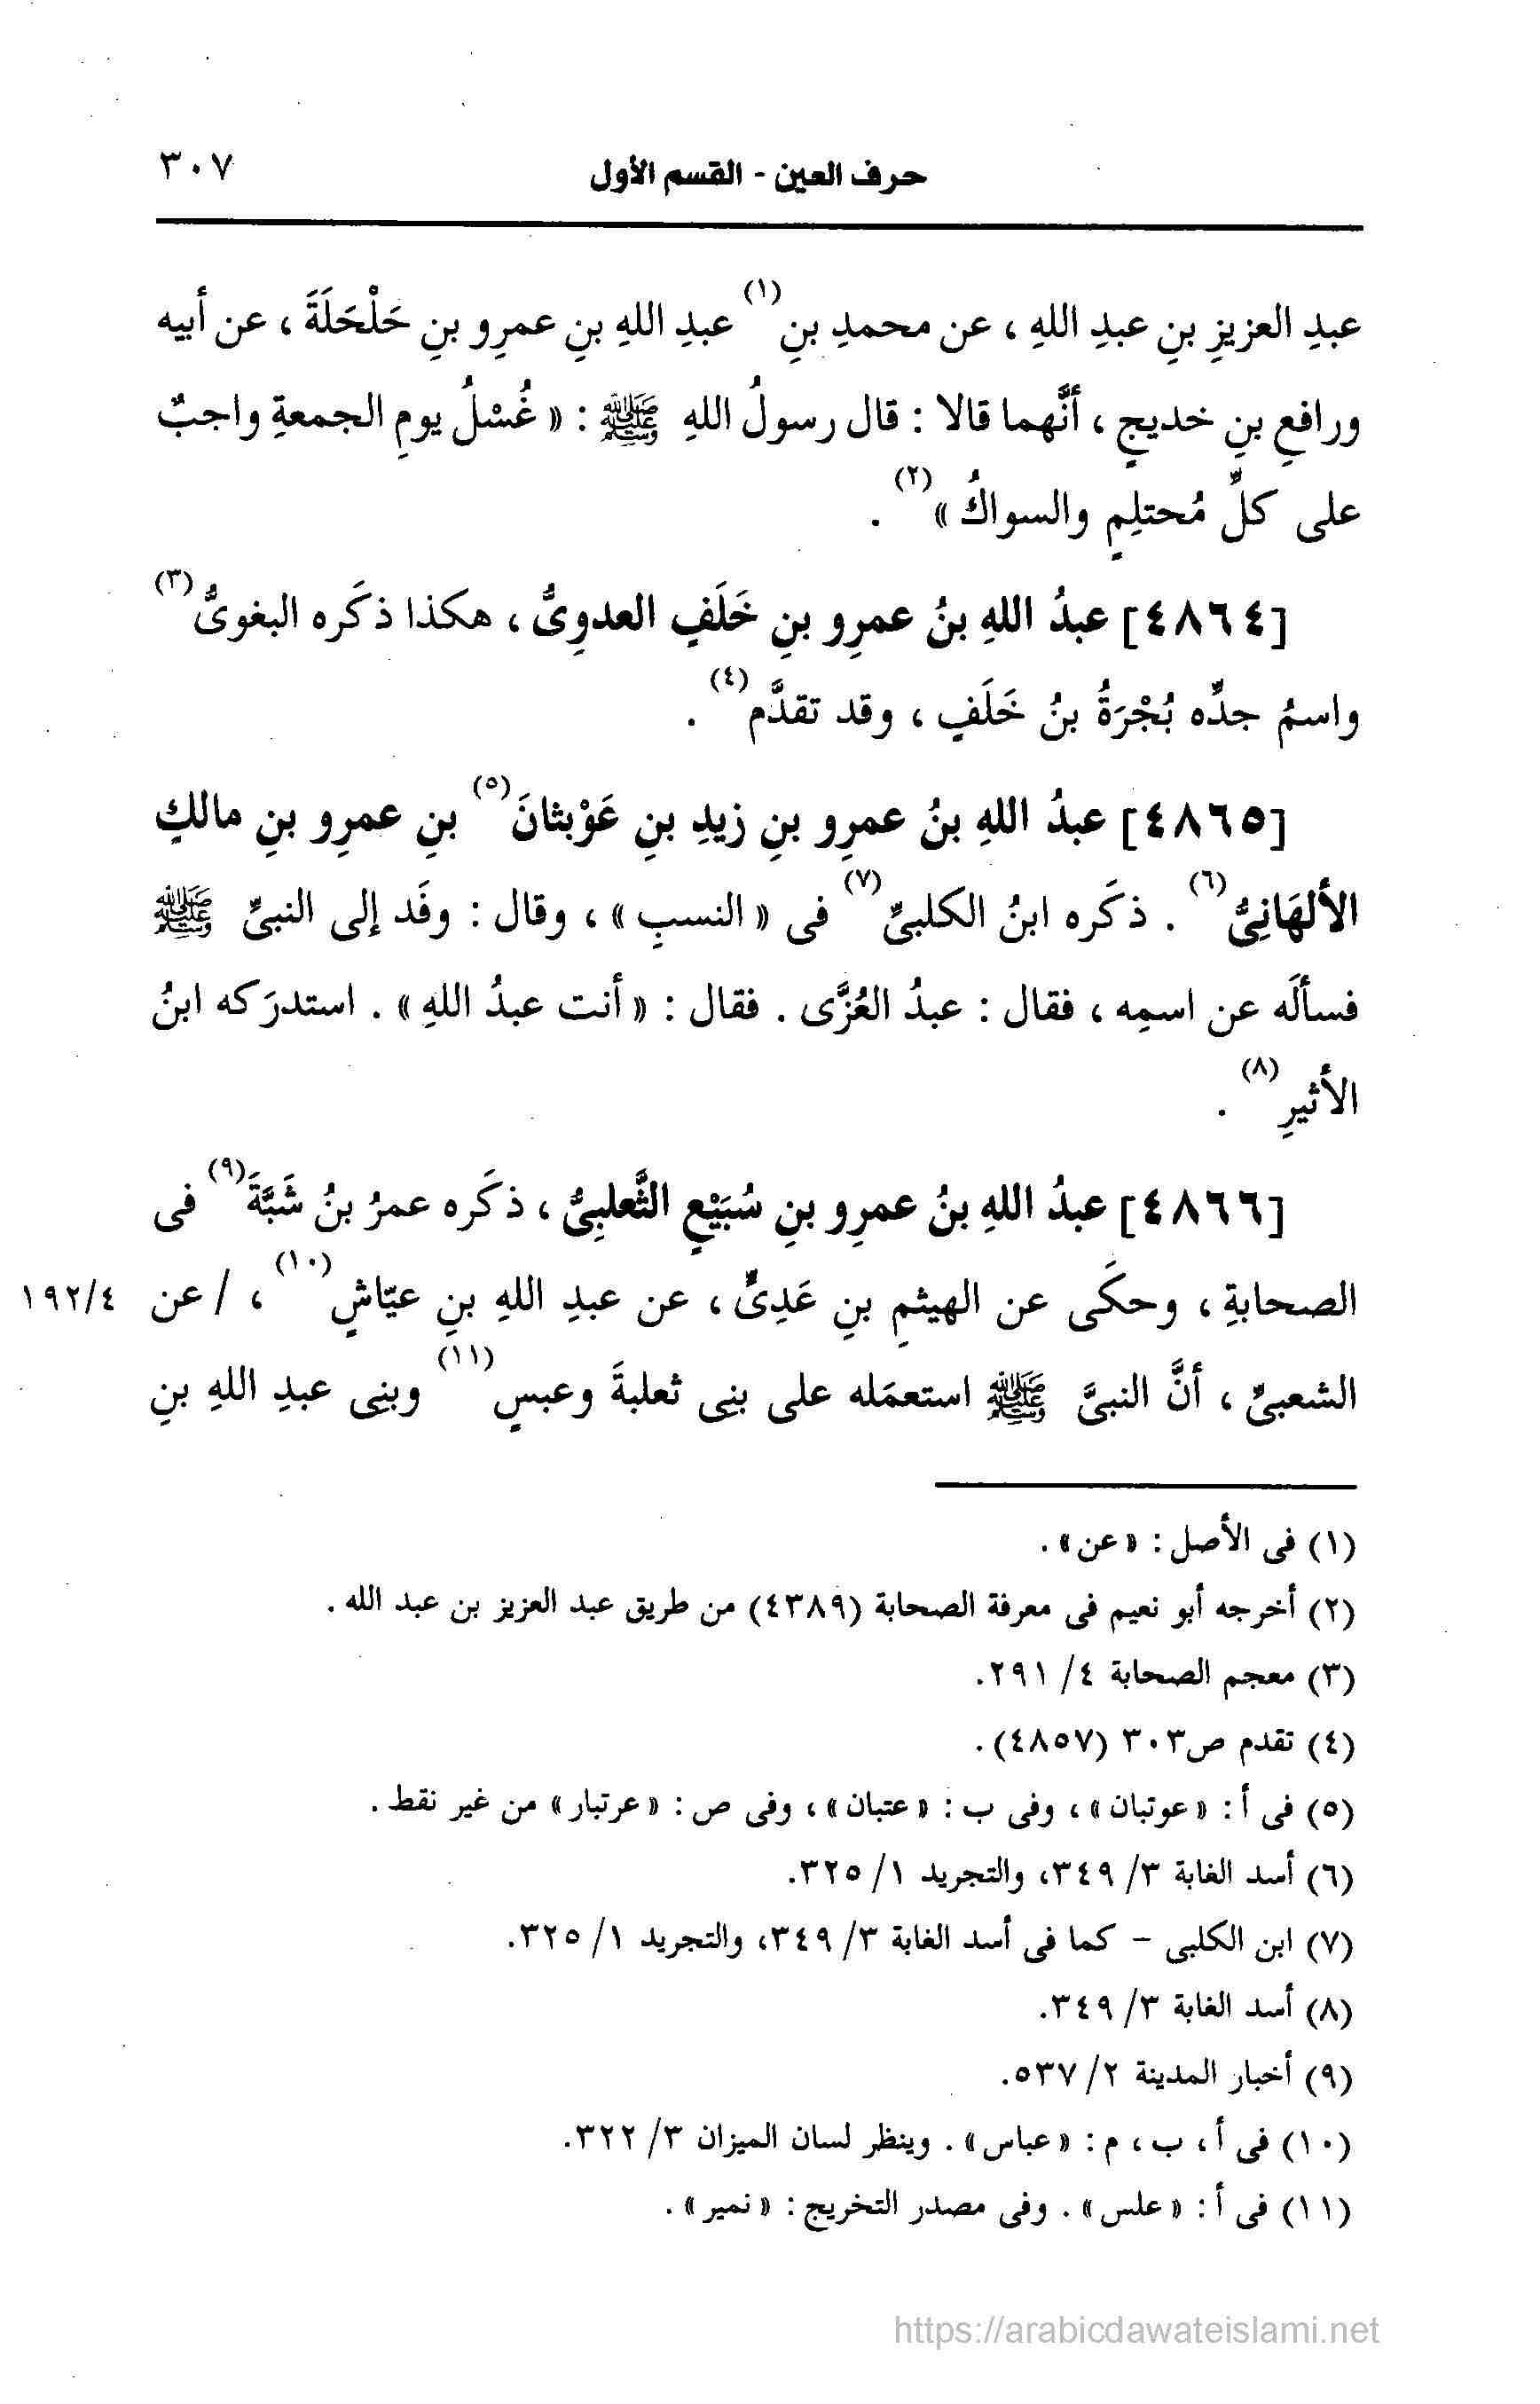 حرف العين - القسم الأول ٣٠٧
عبدِ العزيزِ بنِ عبدِ اللهِ ، عن محمدِ بنِ(١) عبدِ اللهِ بنِ عمرِو بنِ حَلْحَلَةَ ، عن أبيه
ورافعِ بنِ خديجٍ ، أنَّهما قالا : قال رسولُ اللهِ ﷺ : « غُسْلُ يومِ الجمعةِ واجبٌ
على كلِّ مُحتلِمٍ والسواكُ »(٢) .
[٤٨٦٤] عبدُ اللهِ بنُ عمرِو بنِ خَلَفٍ العدوِىُّ ، هكذا ذكَره البغوىُّ(٣)
واسمُ جدِّه بُجْرَةُ بنُ خَلَفٍ ، وقد تقدَّم(٤) .
[٤٨٦٥] عبدُ اللهِ بنُ عمرِو بنِ زيدِ بنِ عَوْبثانَ(٥) بنِ عمرِو بنِ مالكٍ
الألهَانِىُّ(٦) . ذكَره ابنُ الكلبىِّ(٧) فى « النسبِ » ، وقال : وفَد إلى النبىِّ ﷺ
فسألَه عن اسمِه ، فقال : عبدُ العُزَّى . فقال : « أنت عبدُ اللهِ » . استدرَكه ابنُ
الأثيرِ(٨) .
[٤٨٦٦] عبدُ اللهِ بنُ عمرِو بنِ سُبَيْعٍ الثَّعلبِىُّ ، ذكَره عمرُ بنُ شَبَّةَ(٩) فى
الصحابةِ ، وحكَى عن الهيثمِ بنِ عَدِىٍّ ، عن عبدِ اللهِ بنِ عيّاشٍ(١٠) ، / عن ١٩٢/٤
الشعبىِّ ، أنَّ النبىَّ ﷺ استعمَله على بنِى ثعلبةَ وعبسٍ(١١) وبنِى عبدِ اللهِ بنِ
(١) فى الأصل : « عن » .
(٢) أخرجه أبو نعيم فى معرفة الصحابة (٤٣٨٩) من طريق عبد العزيز بن عبد الله .
(٣) معجم الصحابة ٤/ ٢٩١.
(٤) تقدم ص٣٠٣ (٤٨٥٧).
(٥) فى أ : « عوتبان » ، وفى ب : « عتبان » ، وفى ص : « عرتبار » من غير نقط .
(٦) أسد الغابة ٣/ ٣٤٩، والتجريد ١/ ٣٢٥.
(٧) ابن الكلبى - كما فى أسد الغابة ٣/ ٣٤٩، والتجريد ١/ ٣٢٥.
(٨) أسد الغابة ٣/ ٣٤٩.
(٩) أخبار المدينة ٢/ ٥٣٧.
(١٠) فى أ ، ب ، م : « عباس » . وينظر لسان الميزان ٣/ ٣٢٢.
(١١) فى أ : « علس » . وفى مصدر التخريج : « نمير » .
https://arabicdawateislami.net